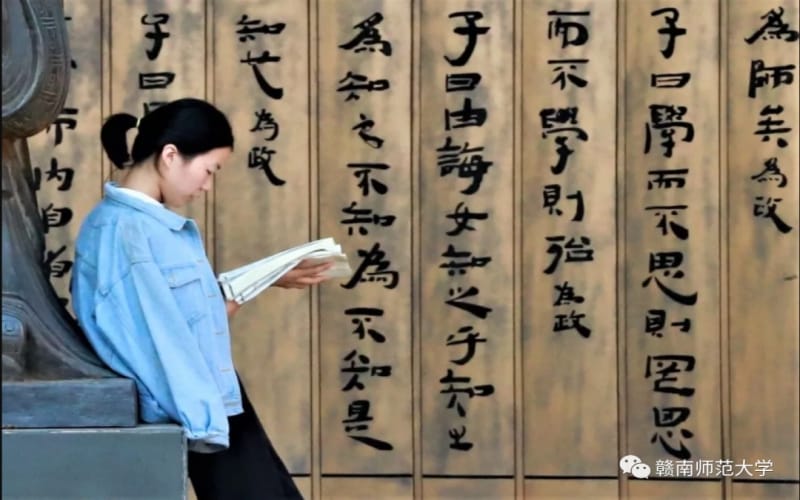 為師矣 為政
子曰學而不思則罔思
而不學則殆 為政
子曰由誨女知之乎知之
為知之不知為不知是
知也 為政
子曰
而內自
赣南师范大学